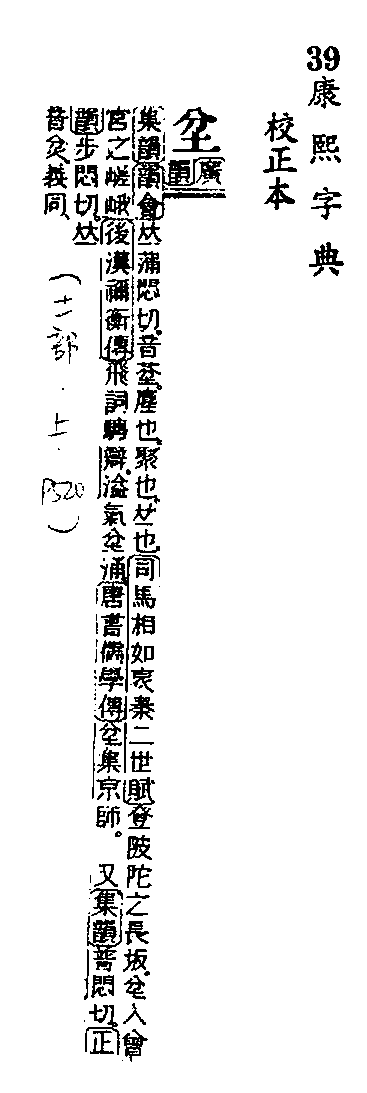 39康熙字典
校正本
坌
廣韻
集韻韻會𠀤蒲悶切音坌塵也聚也𠀤也司馬相如哀秦二世賦登陂陀之長坂坌入曾
宮之嵯峨後漢禰衡傳飛詞騁辯溢氣坌涌唐書儒學傳坌集京師。又集韻普悶切正
韻步悶切𠀤
音坌義同
(土部·上·P520)